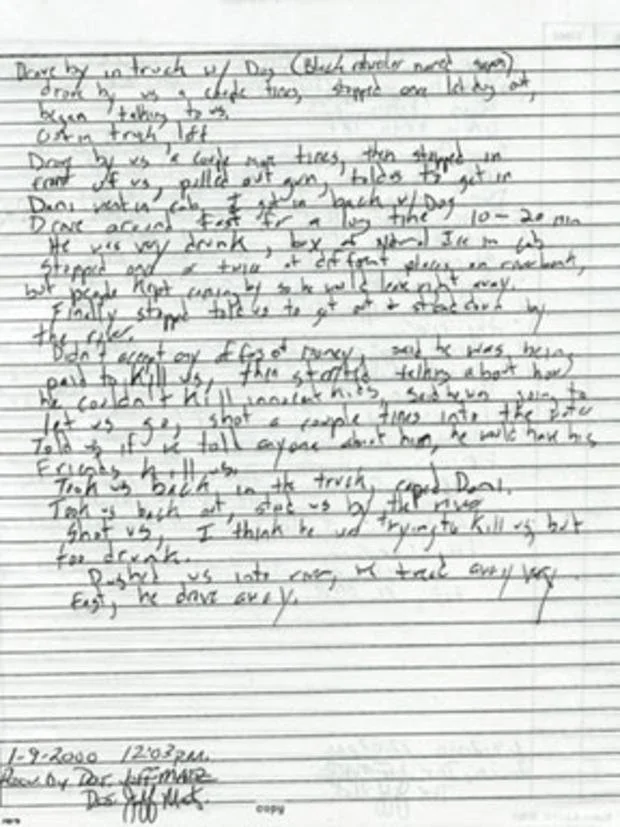 Drove by in truck w/ Dog (Black named
drove by us a couple times, stopped once let dog out,
began talking to us.
Got in truck, left
Drove by us a couple more times, then stopped in
front of us, pulled out gun, told us to get in
Dani went in cab, I got in back w/ Dog
Drove around fast for a long time 10-20 min
He was very drunk, box of Natural Ice in cab
Stopped once or twice at different places on riverbank,
but people kept coming by so he would leave right away.
Finally stopped told us to get out & stand by
the river.
Didn't accept any offers of money, said he was being
paid to kill us, then started telling about how
he couldn't kill innocent kids, said he was going to
let us go, shot a couple times into the
Told us if we told anyone about him, he would have his
Friends kill us.
Took us back in the truck, raped Dani.
Took us back out, us by the river
Shot us, I think he was trying to kill us but
too drunk.
Pushed us into river, we away very
Fast, he drove away.
1-9-2000 12:03 p.m.
Recv. by Det. Jeff
Det. Jeff
copy